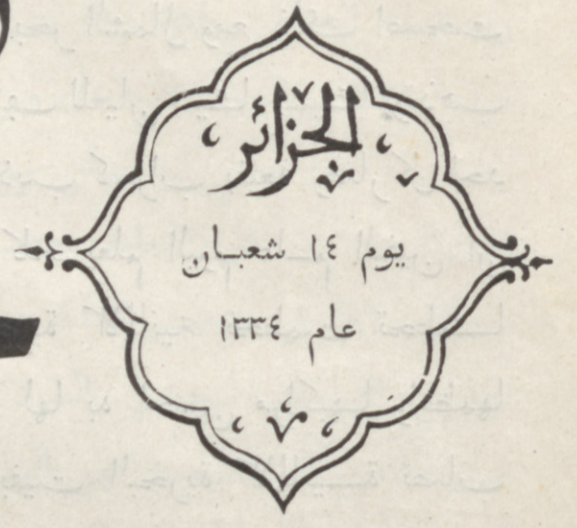 الجزائر
يوم ١٤ شعبان
عام ١٣٣٤